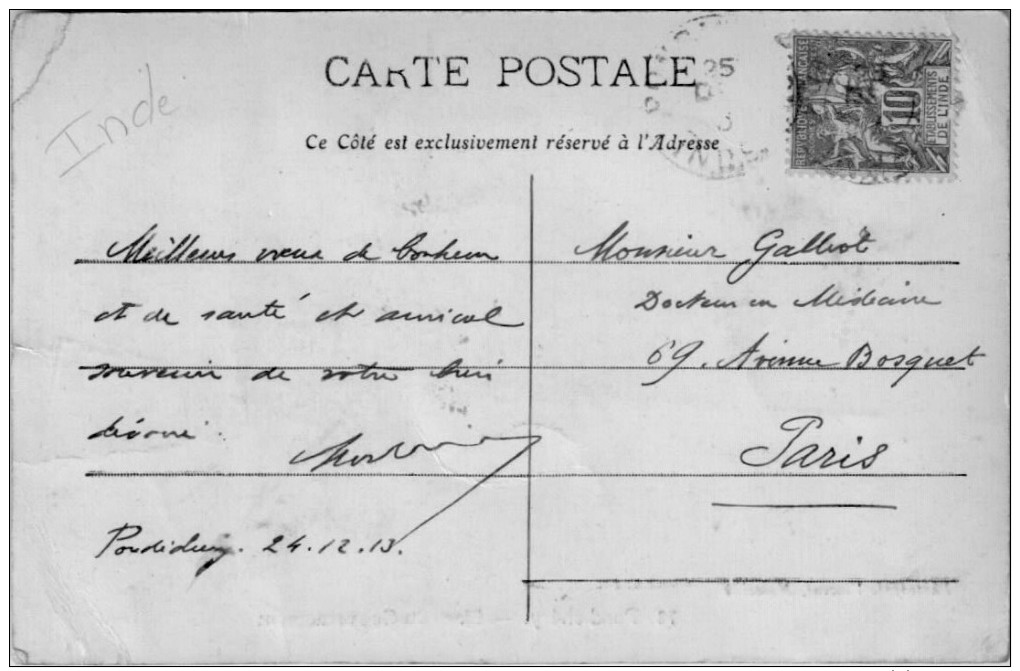 CARTE POSTALE
Ce Côté est exclusivement réservé à l'Adresse
Inde
RÉPUBLIQUE FRANÇAISE
10
ÉTABLISSEMENTS
DE L'INDE
25
Meilleurs vœux de bonheur
et de santé et amical
souvenir de votre bien
dévoué.
Pondichery. 24.12.13.
Monsieur Galliot
Docteur en Médecine
69. Avenue Bosquet
Paris